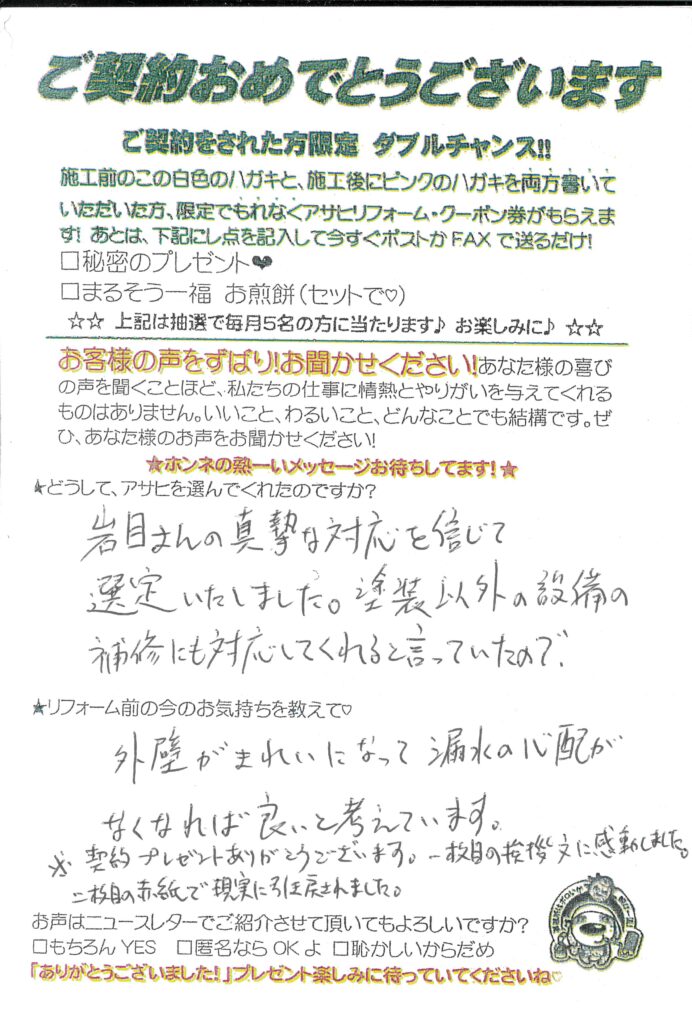 ご契約おめでとうございます
ご契約をされた方限定 ダブルチャンス!!
施工前のこの白色のハガキと、施工後にピンクのハガキを両方書いて
いただいた方、限定でもれなくアサヒリフォーム・クーポン券がもらえま
す! あとは、下記にレ点を記入して今すぐポストか FAX で送るだけ!
□秘密のプレゼント♥
□まるそう一福 お煎餅(セットで♡)
☆☆ 上記は抽選で毎月5名の方に当たります♪ お楽しみに♪ ☆☆
お客様の声をずばり!お聞かせください!あなた様の喜び
の声を聞くことほど、私たちの仕事に情熱とやりがいを与えてくれる
ものはありません。いいこと、わるいこと、どんなことでも結構です。ぜ
ひ、あなた様のお声をお聞かせください!
★ホンネの熱ーいメッセージお待ちしてます!★
★どうして、アサヒを選んでくれたのですか?
岩目さんの真摯な対応を信じて
選定いたしました。塗装以外の設備の
補修にも対応してくれると言っていたので、
★リフォーム前の今のお気持ちを教えて♡
外壁がきれいになって漏水の心配が
なくなれば良いと考えています。
※契約プレゼントありがとうございます。一枚目の挨拶文に感動しました。
二枚目の赤紙で現実に引き戻されました。
お声はニュースレターでご紹介させて頂いてもよろしいですか?
□もちろん YES □匿名なら OK よ □恥かしいからだめ
「ありがとうございました!」プレゼント楽しみに待っていてくださいね♡